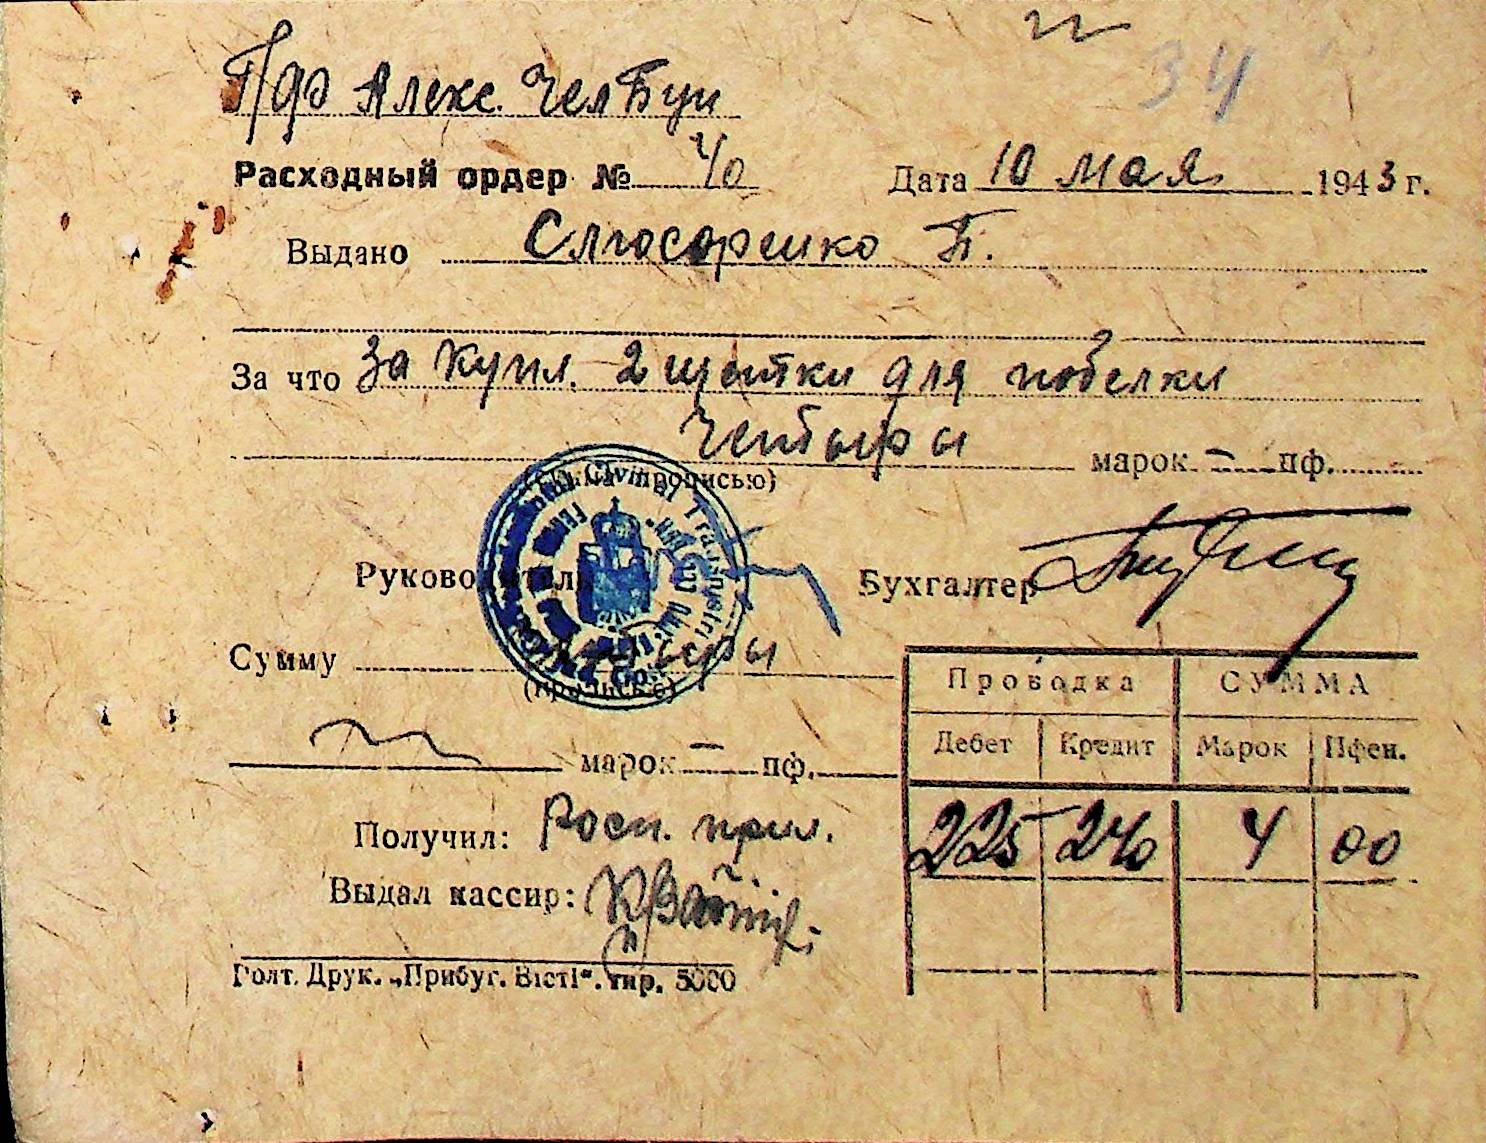 34
Пдф Алекс. Челбуи
Расходный ордер № 40 Дата 10 мая 1943 г.
Выдано Слюсаренко П.
За что за купл. 2 щетки для побелки
Четыры марок — пф.
(сумма прописью)
Руководитель Бухгалтер
Сумму
(прописью)
марок — пф.
Проводка СУММА
Дебет Кредит Марок Пфен.
225 240 4 00
Получил: Росп. прил.
Выдал кассир:
Голт. Друк. „Прибуг. Вісті“. тир. 5000